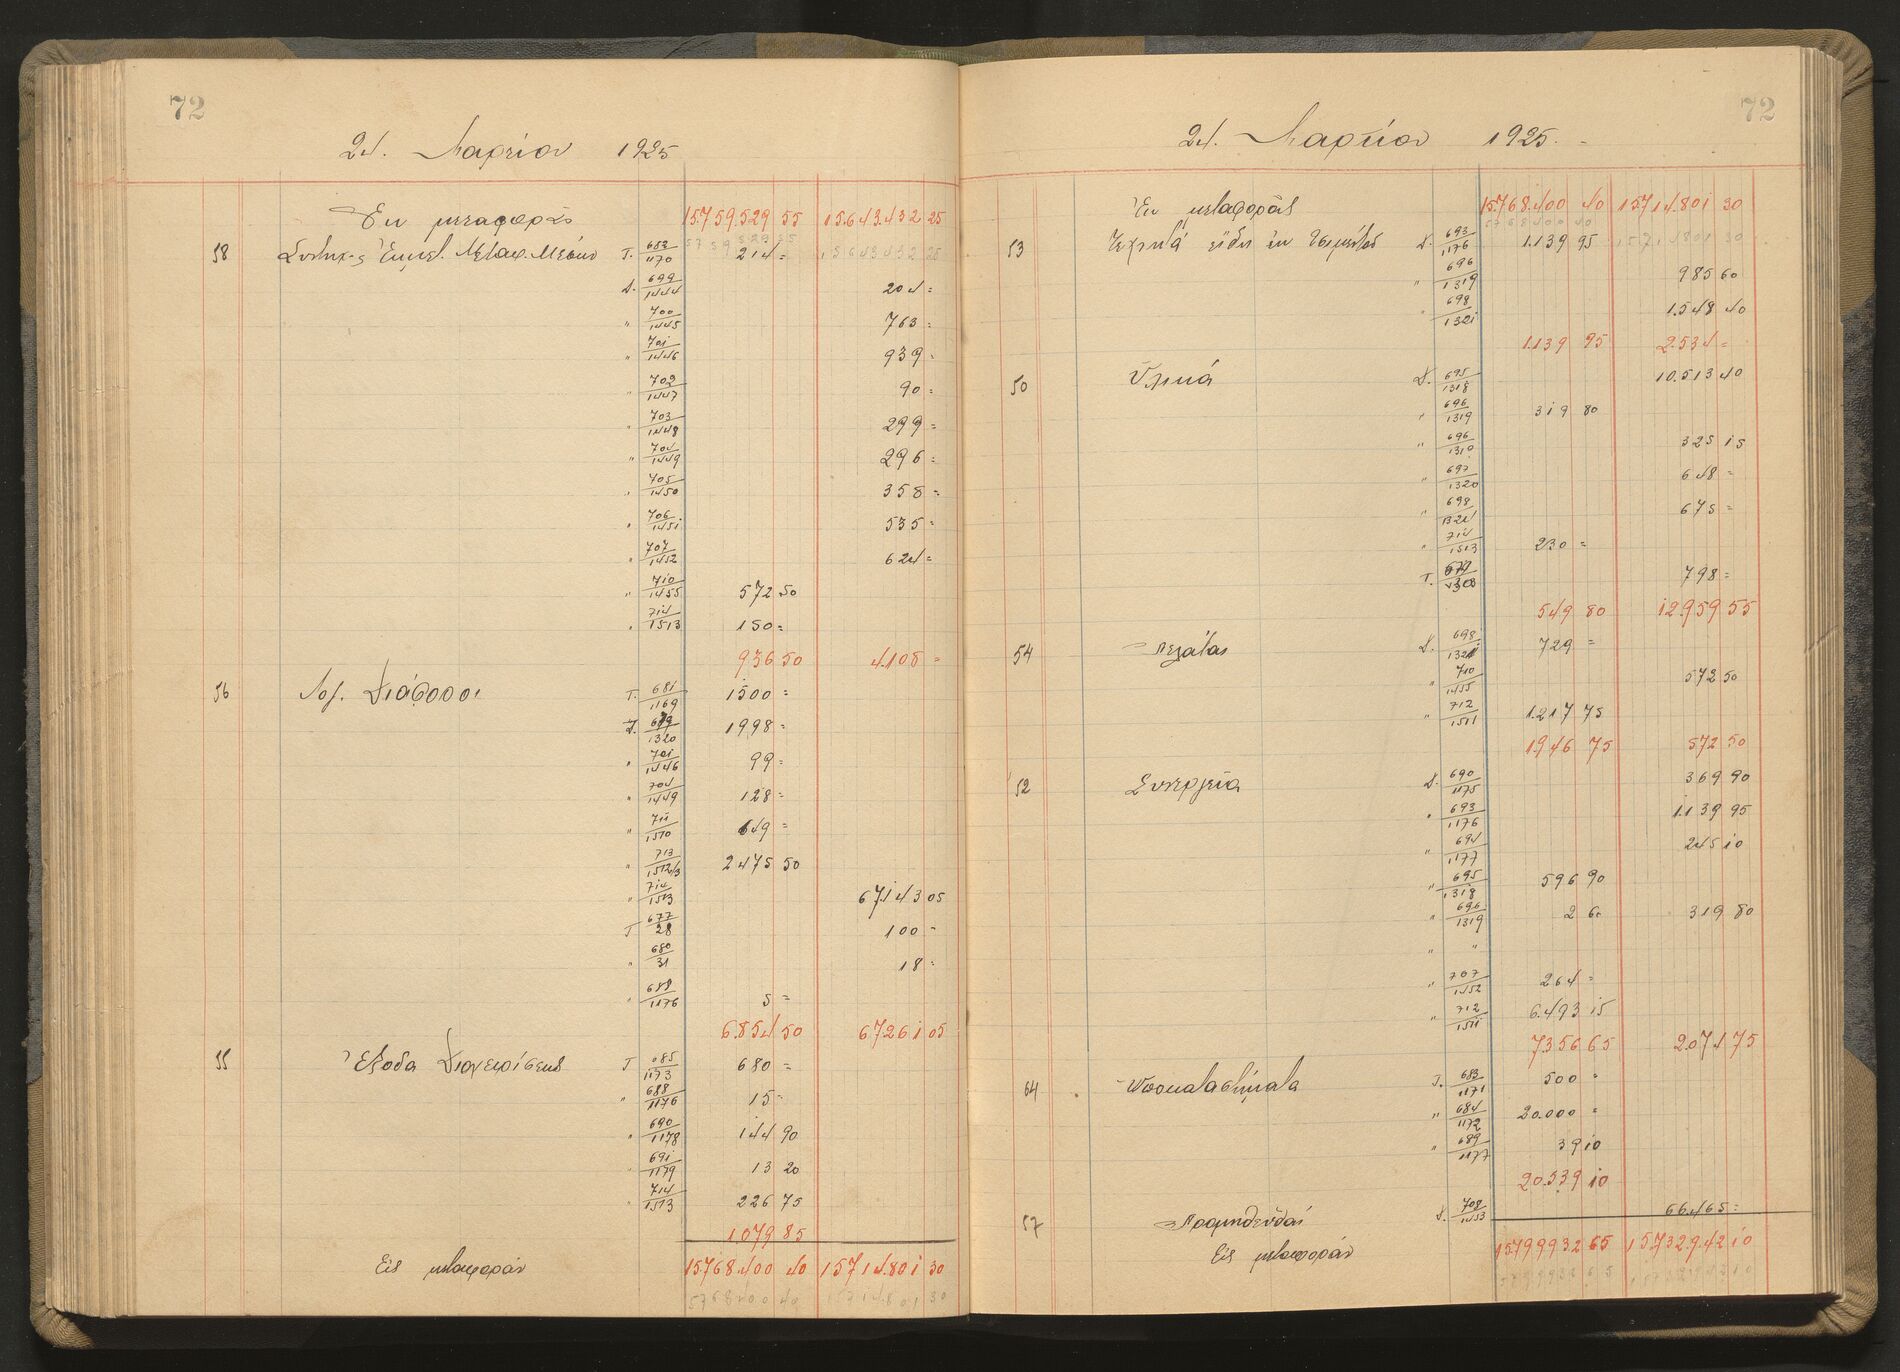 72
24. Μαρτίου 1925
Ἐκ μεταφορᾶς 15.759.529 55 15.643.432 25
58 Συντήρ-ς Ἐκμετ. Μεταφ. Μέσων Τ. 653/1170 214 =
Δ. 699/1444 204 =
" 700/1445 763 =
" 701/1446 939 =
" 702/1447 90 =
" 703/1448 299 =
" 704/1449 296 =
" 705/1450 358 =
" 706/1451 535 =
" 707/1452 624 =
" 710/1455 572 50
" 714/1513 150 =
936 50 4.108 =
56 Λογ. Διάφοροι Τ. 681/1169 1500 =
Δ. 1320 1998 =
" 701/1446 99 =
" 704/1449 128 =
" 711/1510 649 =
" 713/1512/3 2475 50
" 714/1513 67.143 05
Τ 677/28 100 =
" 680/31 18 =
" 688/1176 5 =
6.854 50 67.261 05
55 Ἔξοδα Διαχειρίσεως Τ 685/1173 680 =
" 688/1176 15 =
" 690/1178 144 90
" 691/1179 13 20
" 714/1513 226 75
1079 85
Εἰς μεταφοράν 15.768.400 40 15.714.801 30
72
24. Μαρτίου 1925.
Ἐκ μεταφορᾶς 15.768.400 40 15.714.801 30
53 Τεχνητά εἴδη ἐκ τσιμέντου Δ. 693/1176 1.139 95
" 696/1319 985 60
" 698/1321 1.548 40
1.139 95 2.534 =
50 Ὑλικά Δ. 695/1318 10.513 40
" 696/1319 319 80
" 696/1310 325 15
" 697/1320 648 =
" 698/1321 675 =
" 714/1513 230 =
Τ. 798 =
549 80 12.959 55
54 Πελάται Δ. 698/1321 729 =
" 710/1455 572 50
" 712/1511 1.217 75
1946 75 572 50
52 Συνεργεία Δ. 690/1175 369 90
" 693/1176 1.139 95
" 694/1177 245 10
" 695/1318 596 90
" 696/1319 2 60 319 80
" "
" 707/1452 264 =
" 712/1511 6.493 15
7.356 65 2.074 75
64 Ὑποκαταστήματα Τ. 683/1171 500 =
" 684/1172 20.000 =
" 689/1177 39 10
20.539 10
57 Προμηθευταί Δ. 708/1453 66.465 =
Εἰς μεταφοράν 15.799.932 65 15.732.942 10